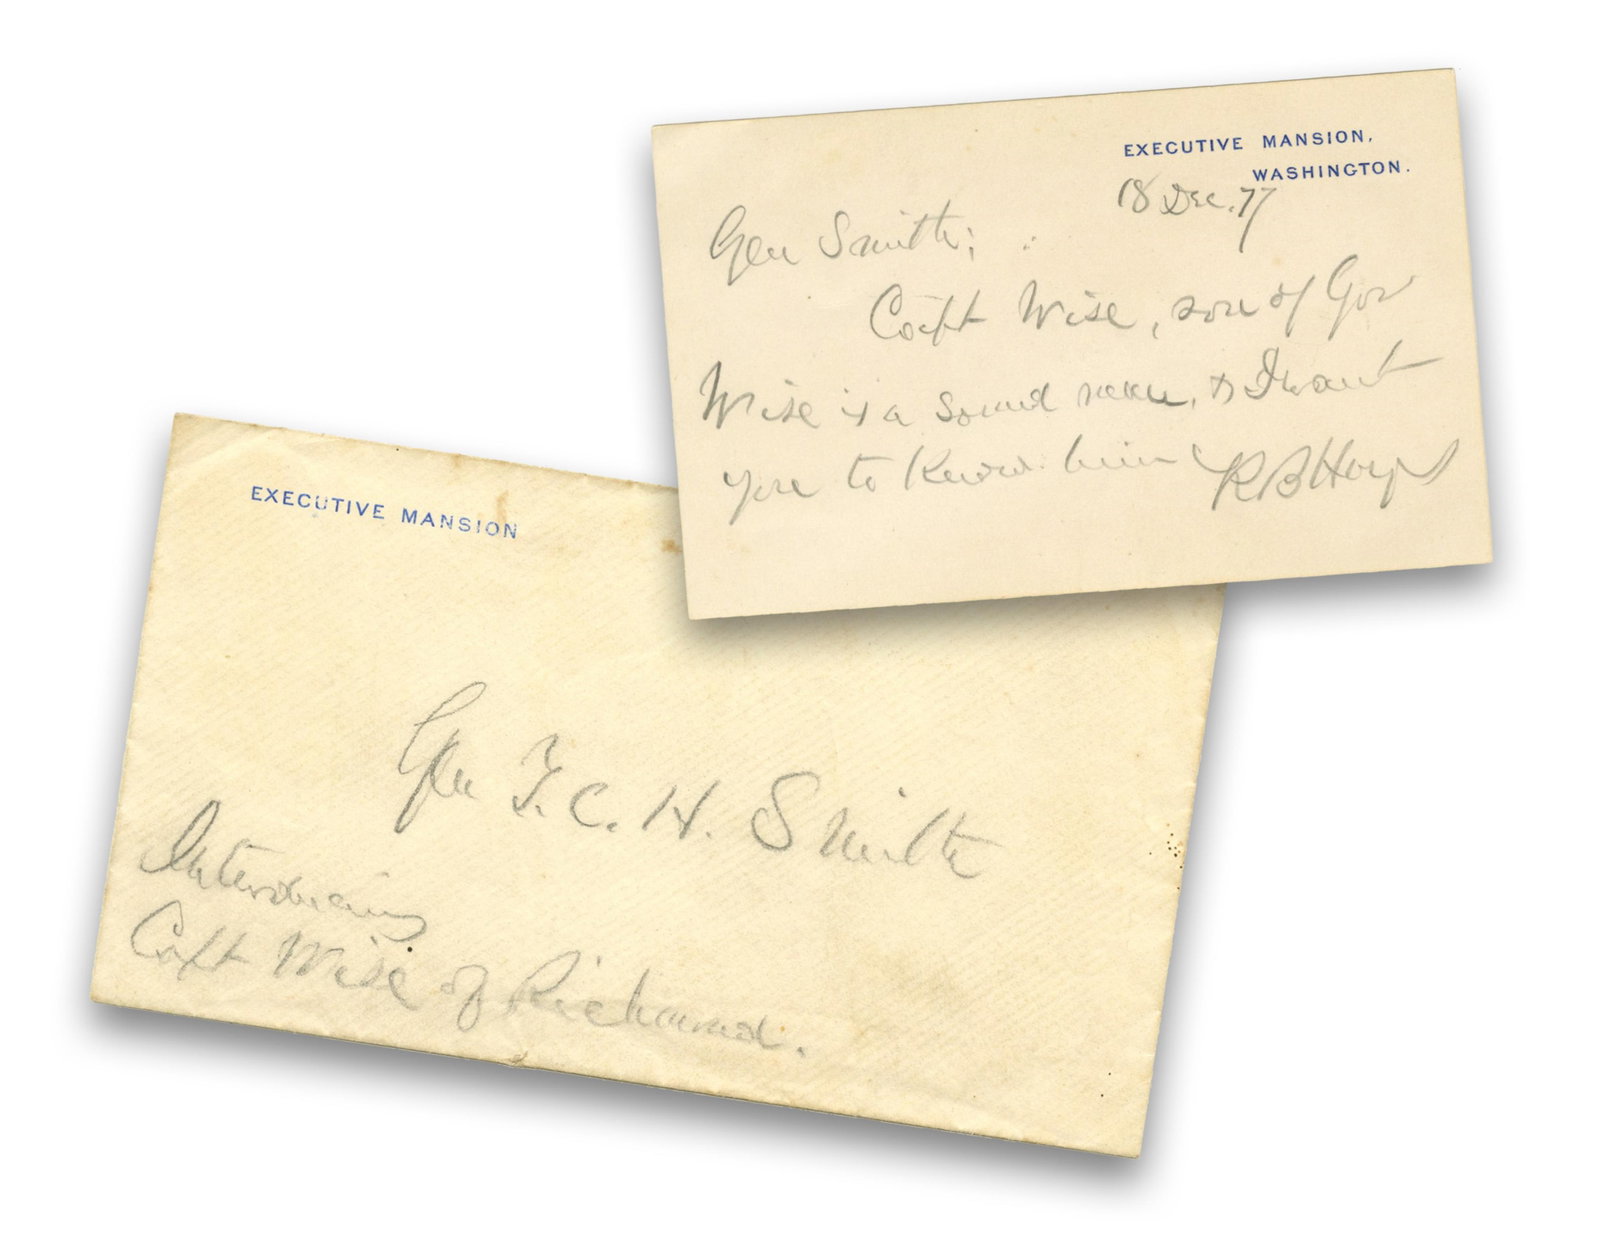 EXECUTIVE MANSION,
WASHINGTON.
18 Dec. 77
Gen Smith;
Capt Wise, son of Gov
Wise is a sound man, & I want
you to know him R B Hayes
EXECUTIVE MANSION
Gen T. C. H. Smith
Introducing
Capt Wise of Richmond.